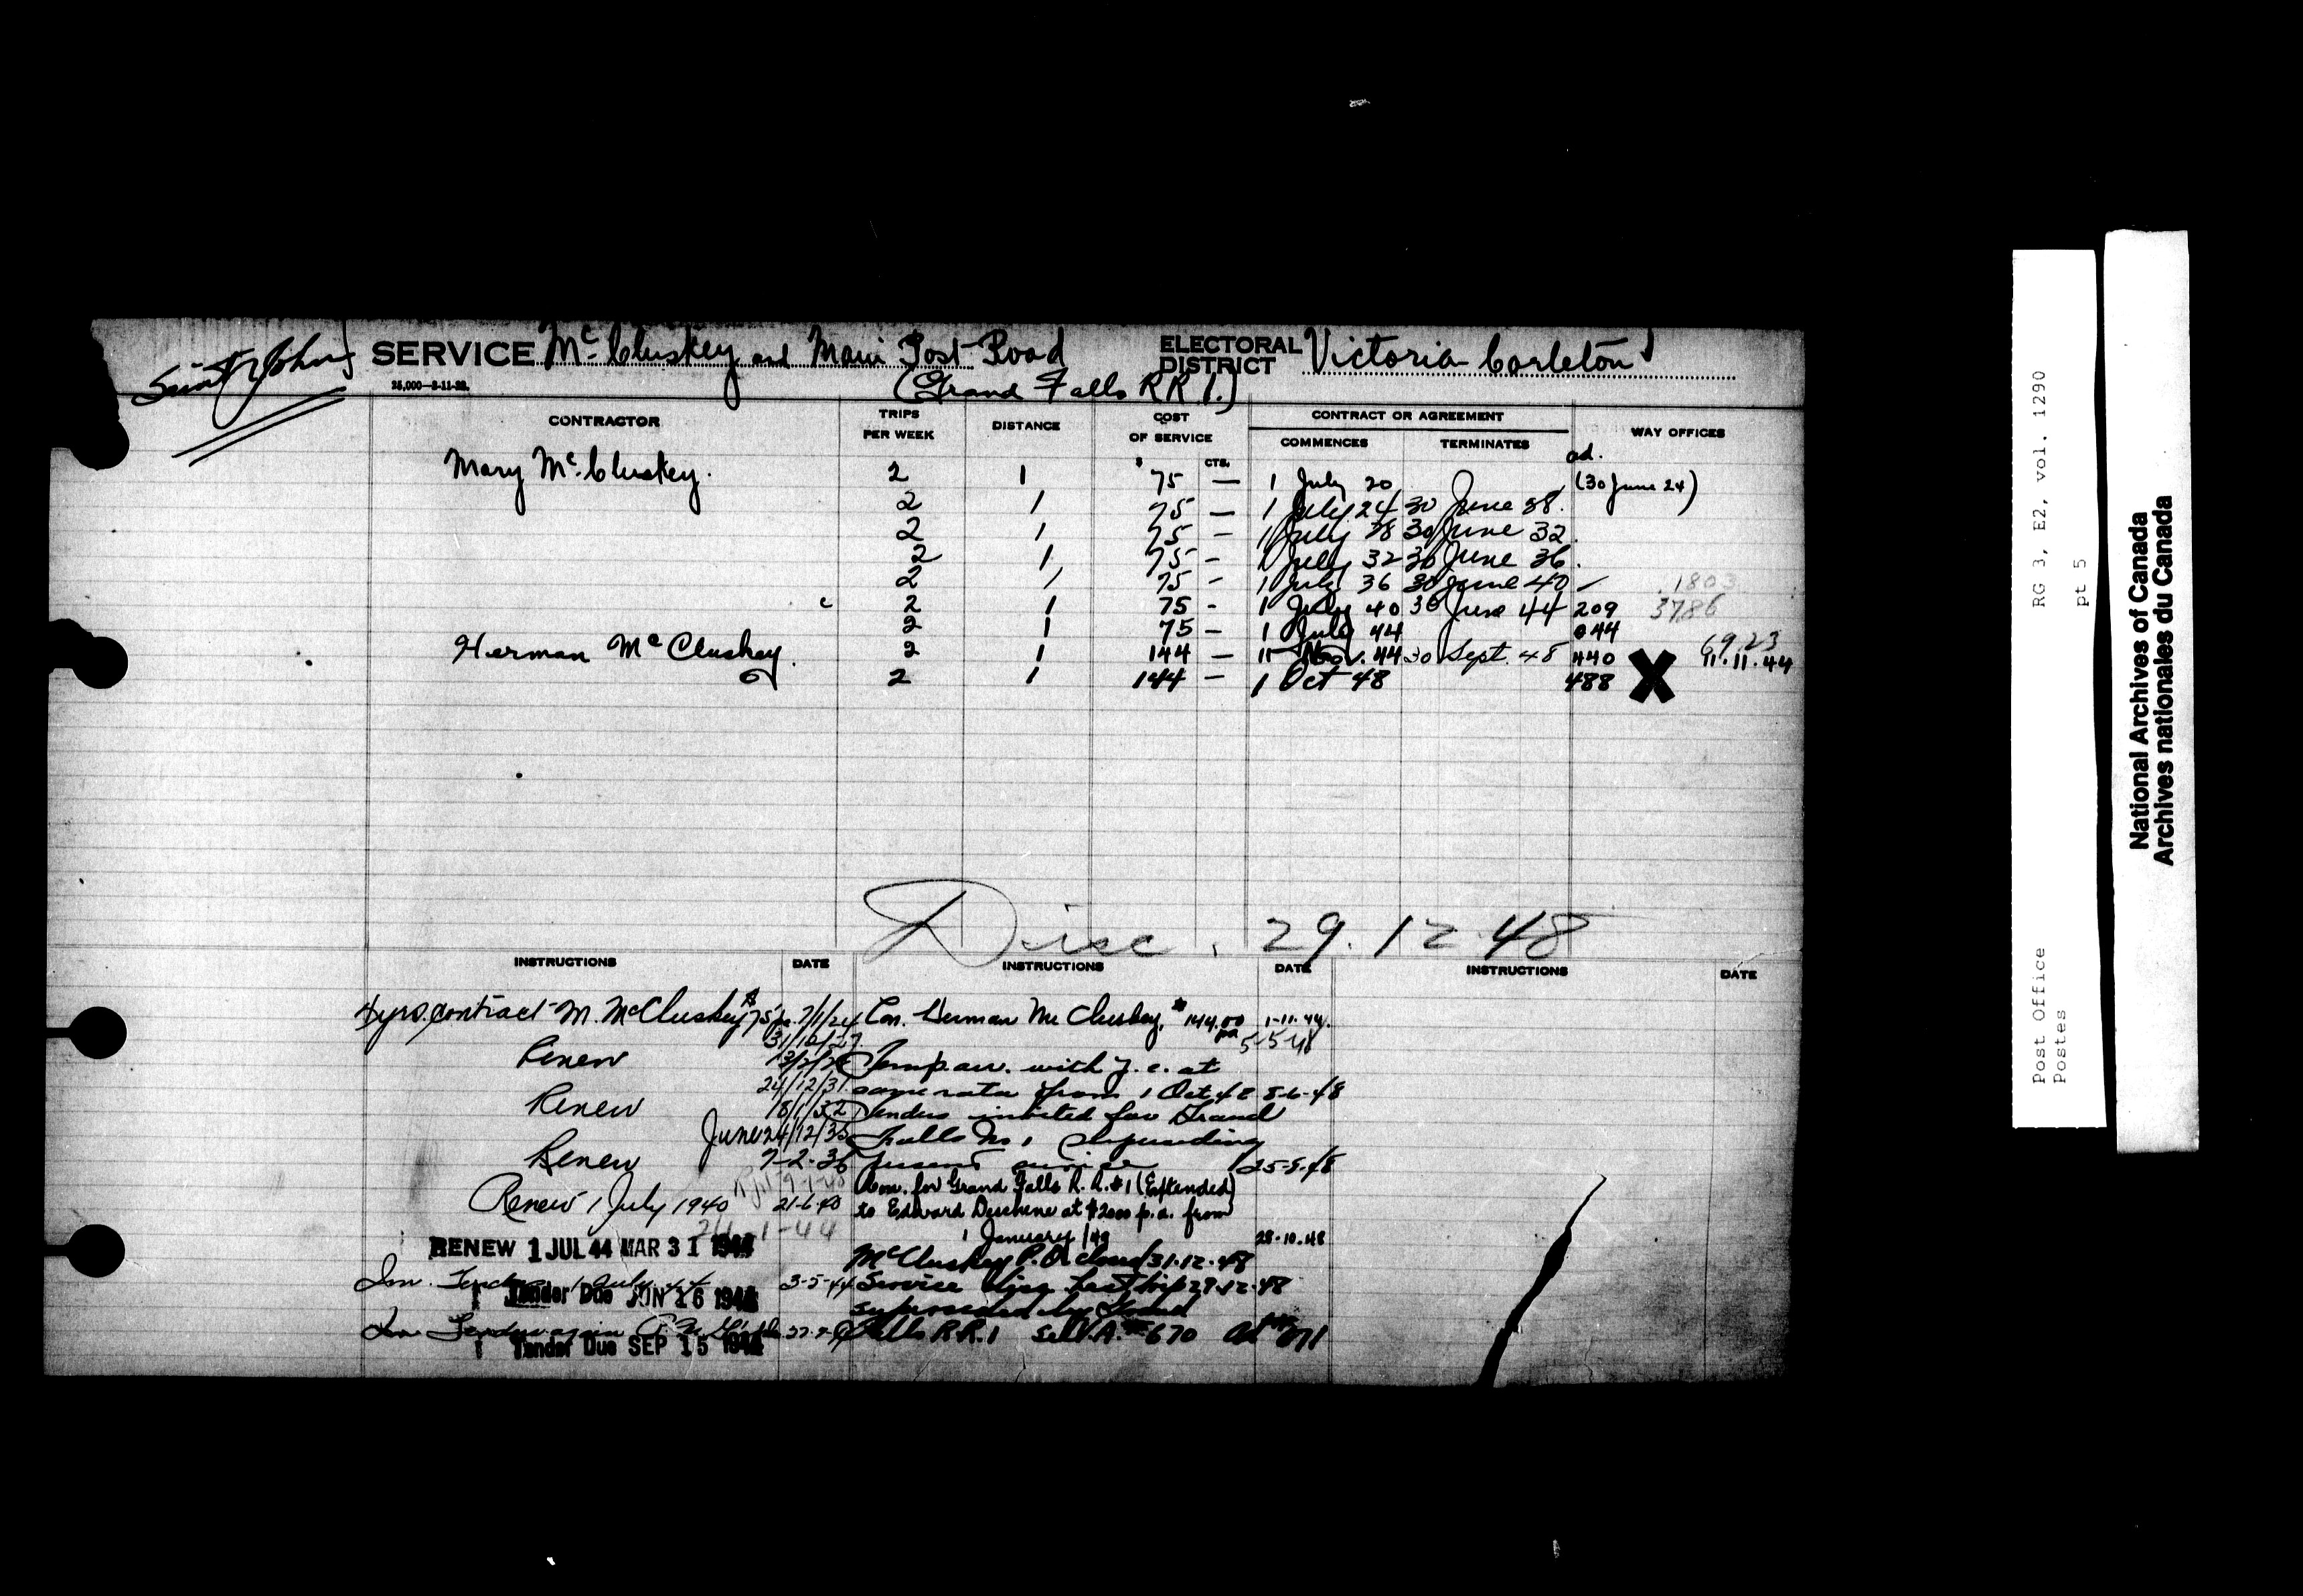 Saint John
SERVICE McCluskey and Main Post Road
(Grand Falls R.R.1.)
ELECTORAL DISTRICT Victoria-Carleton
25,000—8-11-22.
CONTRACTOR TRIPS PER WEEK DISTANCE COST OF SERVICE CONTRACT OR AGREEMENT WAY OFFICES
COMMENCES TERMINATES
$ CTS. ad.
Mary McCluskey. 2 1 75 — 1 July 20 (30 June 24)
2 1 75 — 1 July 24 30 June 28.
2 1 75 — 1 July 28 30 June 32.
2 1 75 — 1 July 32 30 June 36.
2 1 75 - 1 July 36 30 June 40 - 1803
2 1 75 - 1 July 40 30 June 44 209 3786
2 1 75 — 1 July 44 044
Herman McCluskey. 2 1 144 — 11 Nov. 44 30 Sept. 48 440 X 6923 11.11.44
2 1 144 — 1 Oct 48 488
Disc. 29.12.48
INSTRUCTIONS DATE INSTRUCTIONS DATE INSTRUCTIONS DATE
4 yrs. contract M. McCluskey $75 7/1/24
31/12/27
Renew 13/2/28
24/12/31
Renew 18/1/32
June 24/12/35
Renew 7-2-36
Renew 1 July 1940 21-6-40
24-1-44
RENEW 1 JUL 44 MAR 31 1944
Inv. Tender 1 July 44 3-5-44
Tender Due JUN 16 1944
Inv. Tender again
Tender Due SEP 15 1944
Con. Herman McCluskey, $144.00 pa 1-11-44.
5-5-48
Temp. arr. with p.c. at
same rate from 1 Oct 48 8-6-48
Tenders invited for Grand
Falls No 1 superseding
present service 25-8-48
Con. for Grand Falls R.R.#1 (Extended)
to Edward Deschene at $2000 p.a. from
1 January /49 28-10-48
McCluskey P.O. closed 31-12-48
Service disc last trip 29-12-48
superseded by Grand
Falls R.R.1 670 671
RG 3, E2, vol. 1290
pt 5
Post Office
Postes
National Archives of Canada
Archives nationales du Canada